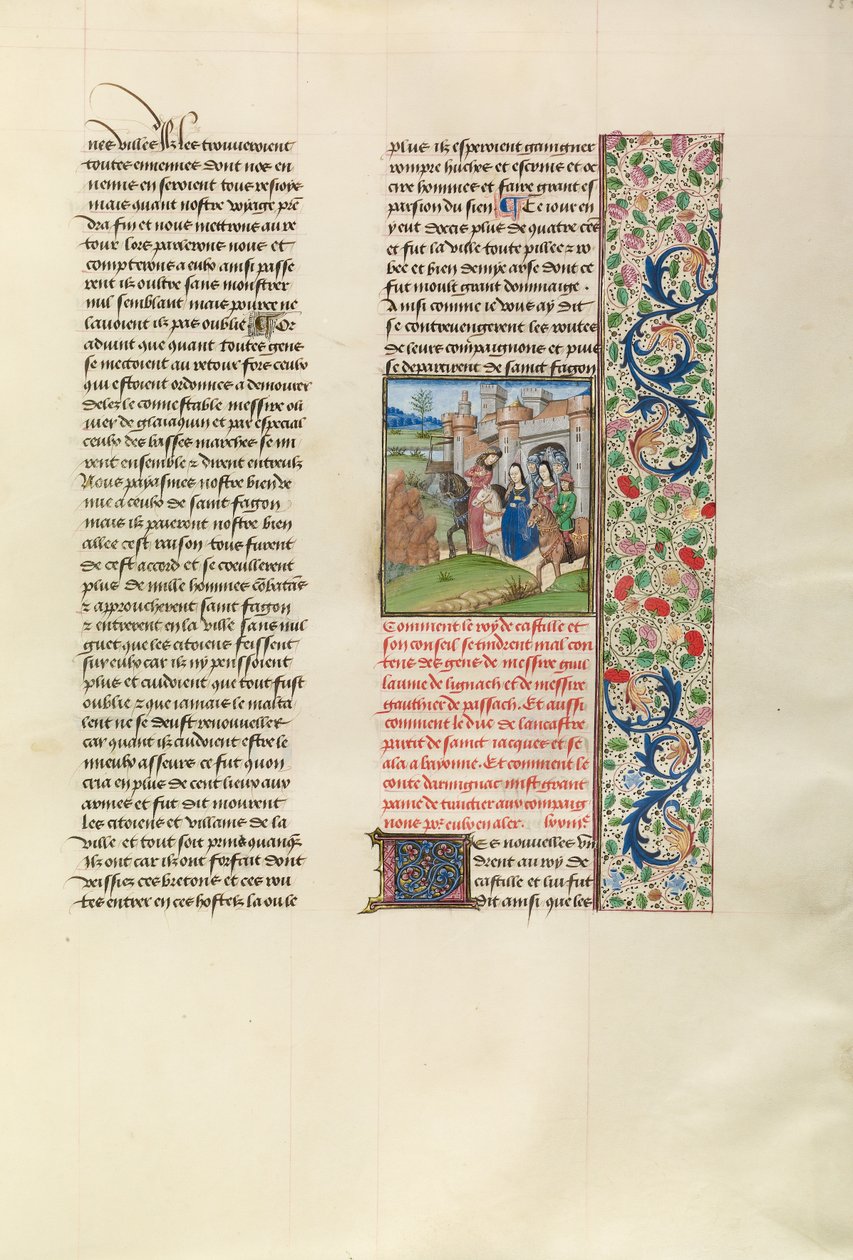 nes villes Ilz les trouveroient
toutes ennemies dont noz en
nemis en seroient tous resioys
mais quant nostre voyage prē
dra fin et nous mettrons au re
tour lors parlerons nous et
compterons a eulx ainsi passe
rent ilz oultre sans monstrer
nul semblant mais pource ne
lavoient ilz pas oublie Or
advint que quant toutes gens
se mectoient au retour fors ceulx
qui estoient ordonnes a demourer
delez le connestable messire oli
vier de glaiaquin et par especial
ceulx des basses marches se mi
rent ensemble z dirent entreulz
Nous payasmes nostre bienve
nue a ceulx de saint fagon
mais ilz paieront nostre bien
allee cest raison tous furent
de cest accord et se coeullerent
plus de mille hommes cōbatās
z approucherent saint fagon
z entrerent en la ville sans nul
guet que les citoiens feissent
sur eulx car ilz ny penssoient
plus et cuidoient que tout fust
oublie z que iamais le malta
lent ne se deust renouveller
car quant ilz cuidoient estre le
mieulx asseure ce fut quon
cria en plus de cent lieux aux
armes et fut dit meurent
les citoiens et villains de la
ville et tout soit prins quanq̄
Ilz ont car ilz ont forfait dont
veissiez ces bretons et ces rou
tes entrer en ces hostelz la ou le
plus ilz esperoient gaingner
rompre huches et escrins et oc
cire hommes et faire grant es
parsion du sien Ce iour en
y eut doccis plus de quatre cēs
et fut la ville toute pillee z ro
bee et bien demye arse dont ce
fut moult grant dommaige.
Ainsi comme ie vous ay dit
se contrevengerent les routes
de leurs compaignons et puis
se departirent de sainct fagon
Comment le roy de castille et
son conseil se tindrent mal con
tens des gens de messire guil
laume de lignach et de messire
gauthier de passach. Et aussi
comment le duc de lancastre
partit de sainct iacques et se
ala a bayonne. Et comment le
conte darmignac mist grant
paine de traictier aux compaig
nons pōr eulx en aler.
LEs nouvelles vin
drent au roy de
castille et lui fut
dit ainsi que les